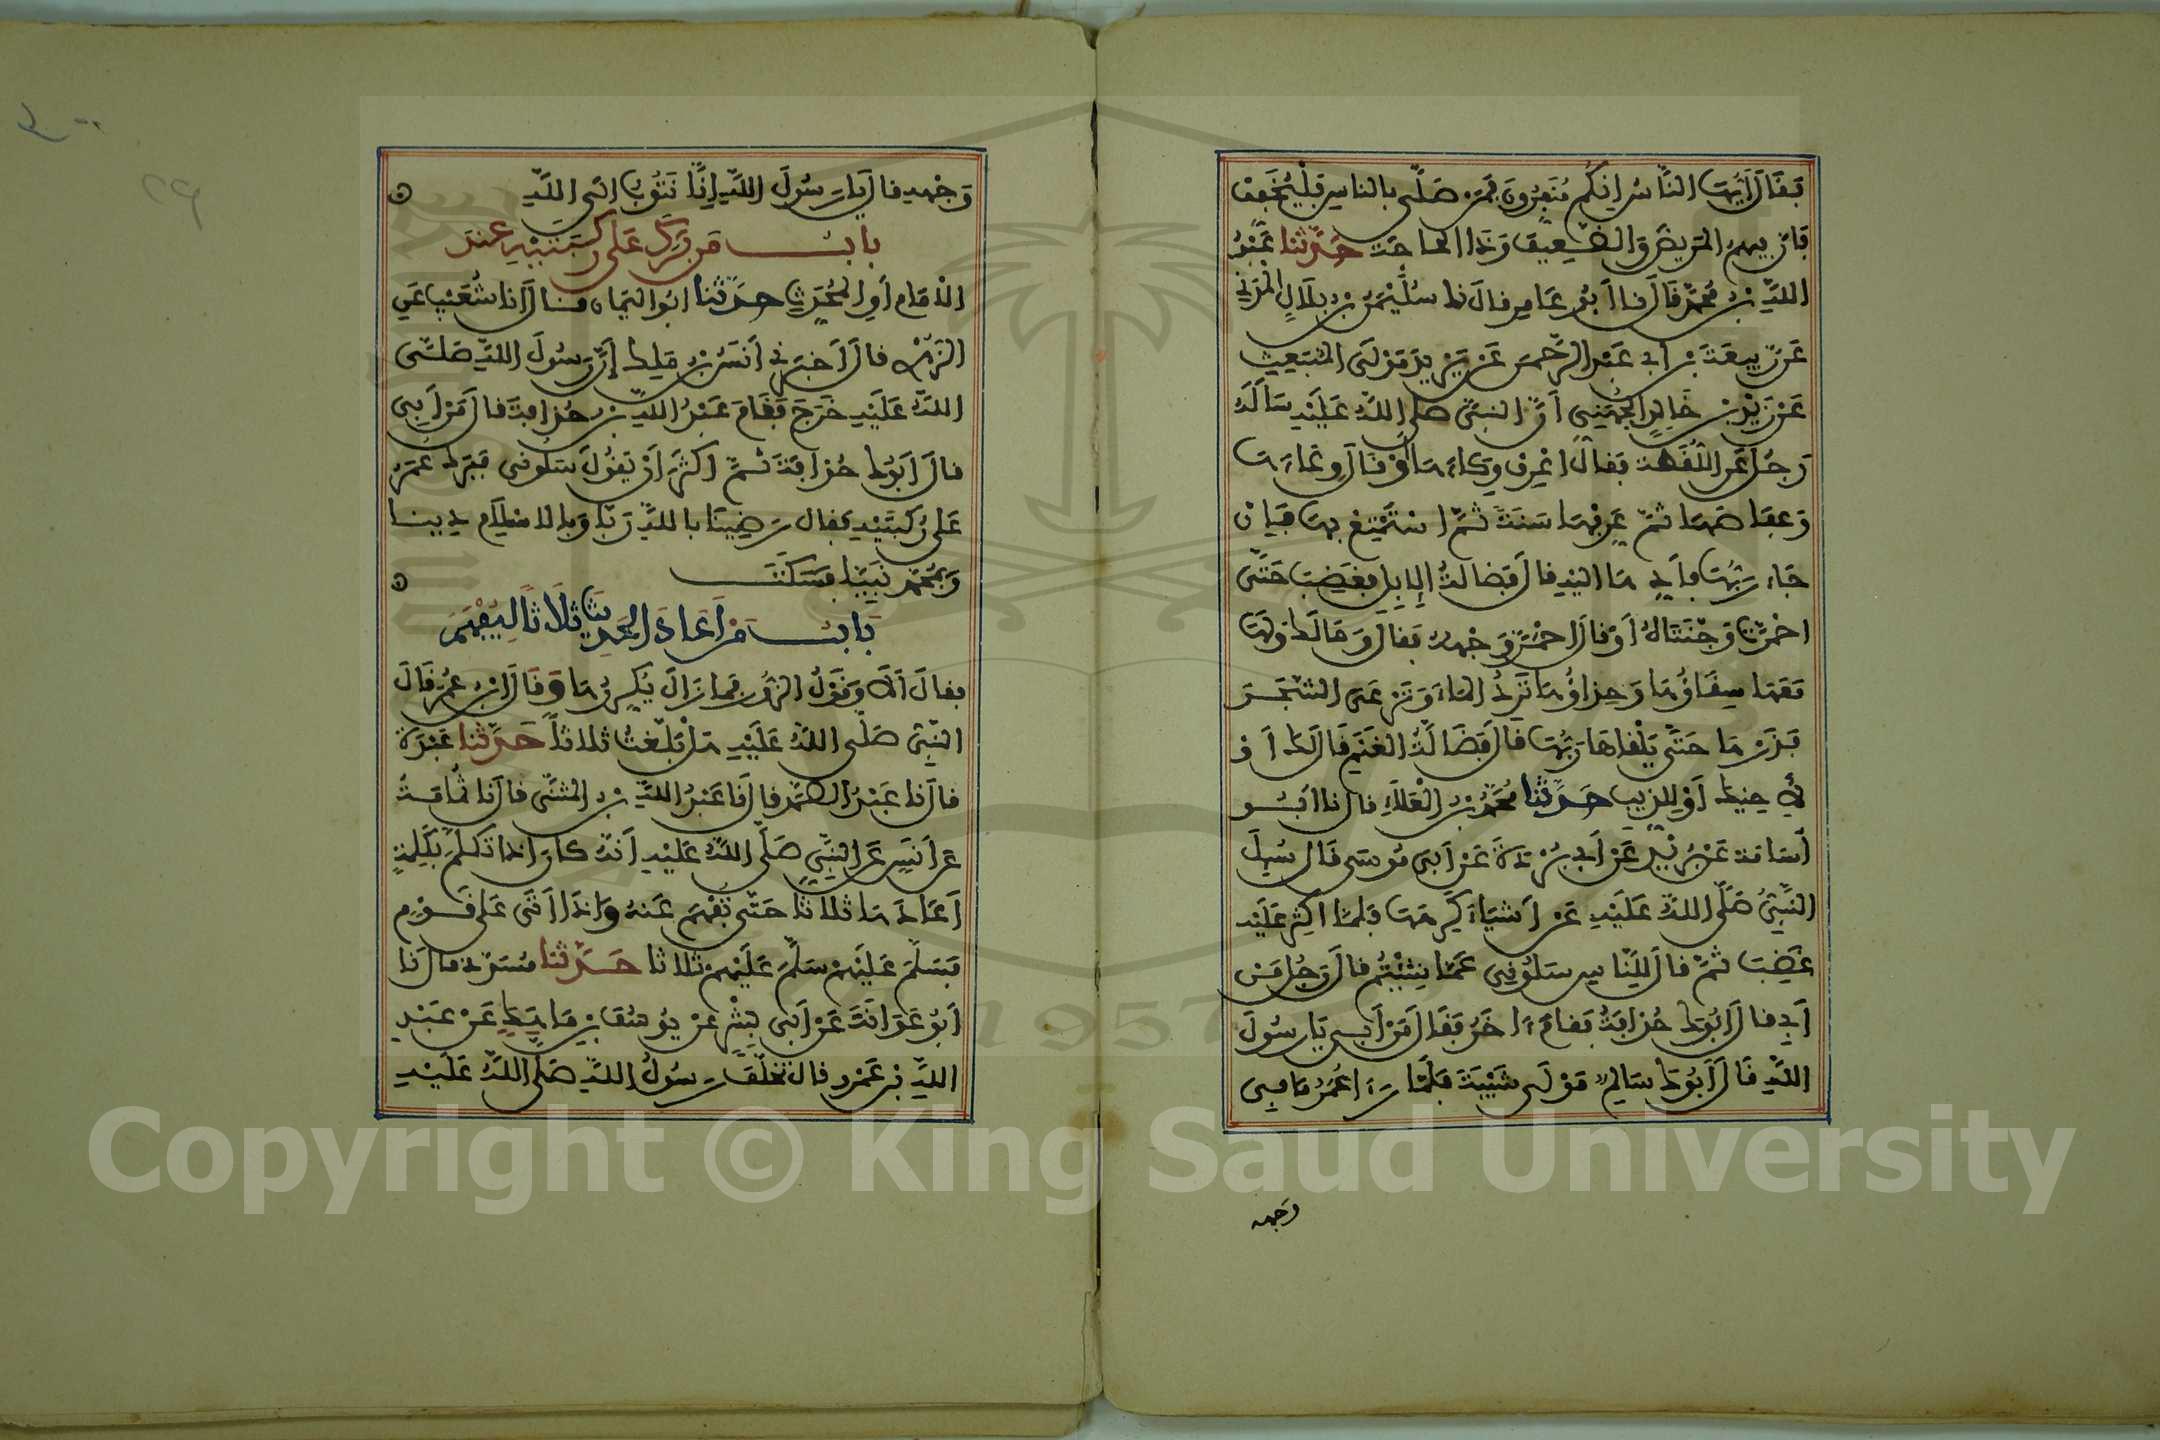 فقال أيها الناس إنكم منفرون فمن صلى بالناس فليخفف
فإن فيهم المريض والضعيف وذا الحاجة حدثنا عبد
الله بن محمد قال نا أبو عامر قال نا سليمن بن بلال المدني
عن ربيعة بن أبي عبد الرحمن عن يزيد مولى المنبعث
عن زيد بن خالد الجهني أن النبي صلى الله عليه سأله
رجل عن اللقطة فقال اعرف وكاءها أو قال وعاءها
وعفاصها ثم عرفها سنة ثم استمتع بها فإن
جاء ربها فأدها إليه قال فضالة الإبل فغضب حتى
احمرت وجنتاه أو قال احمر وجهه فقال ومالك ولها
معها سقاؤها وحذاؤها ترد الماء وترعى الشجر
فذرها حتى يلقاها ربها قال فضالة الغنم قال لك أو
لأخيك أو للذيب حدثنا محمد بن العلاء قال نا أبو
أسامة عن بريد عن أبي بردة عن أبي موسى قال سيل
النبي صلى الله عليه عن أشياء كرهها فلما أكثر عليه
غضب ثم قال للناس سلوني عما شئتم قال رجل من
أبي قال أبوك حذافة فقام ءاخر فقال من أبي يا رسول
الله قال أبوك سالم مولى شيبة فلما رءا عمر ما في
وجهه
وجهه قال يا رسول الله إنا نتوب إلى الله
باب من برك على ركبتيه عند
الإمام أو المحدث حدثنا أبو اليمان قال أنا شعيب عن
الزهري قال أخبرني أنس بن ملك أن رسول الله صلى
الله عليه خرج فقام عبد الله بن حذافة فقال من أبي
قال أبوك حذافة ثم أكثر أن يقول سلوني فبرك عمر
على ركبتيه فقال رضينا بالله ربا وبالإسلام دينا
وبمحمد نبيا فسكت
باب من أعاد الحديث ثلاثا ليفهم
فقال ألا وقول الزور فما زال يكررها وقال ابن عمر قال
النبي صلى الله عليه هل بلغت ثلاثا حدثنا عبدة
قال نا عبد الصمد قال نا عبد الله بن المثنى قال نا ثمامة
عن أنس عن النبي صلى الله عليه أنه كان إذا تكلم بكلمة
أعادها ثلاثا حتى تفهم عنه وإذا أتى على قوم
فسلم عليهم سلم عليهم ثلاثا حدثنا مسدد قال نا
أبو عوانة عن أبي بشر عن يوسف بن ماهك عن عبد
الله بن عمرو قال تخلف رسول الله صلى الله عليه
1957
Copyright © King Saud University